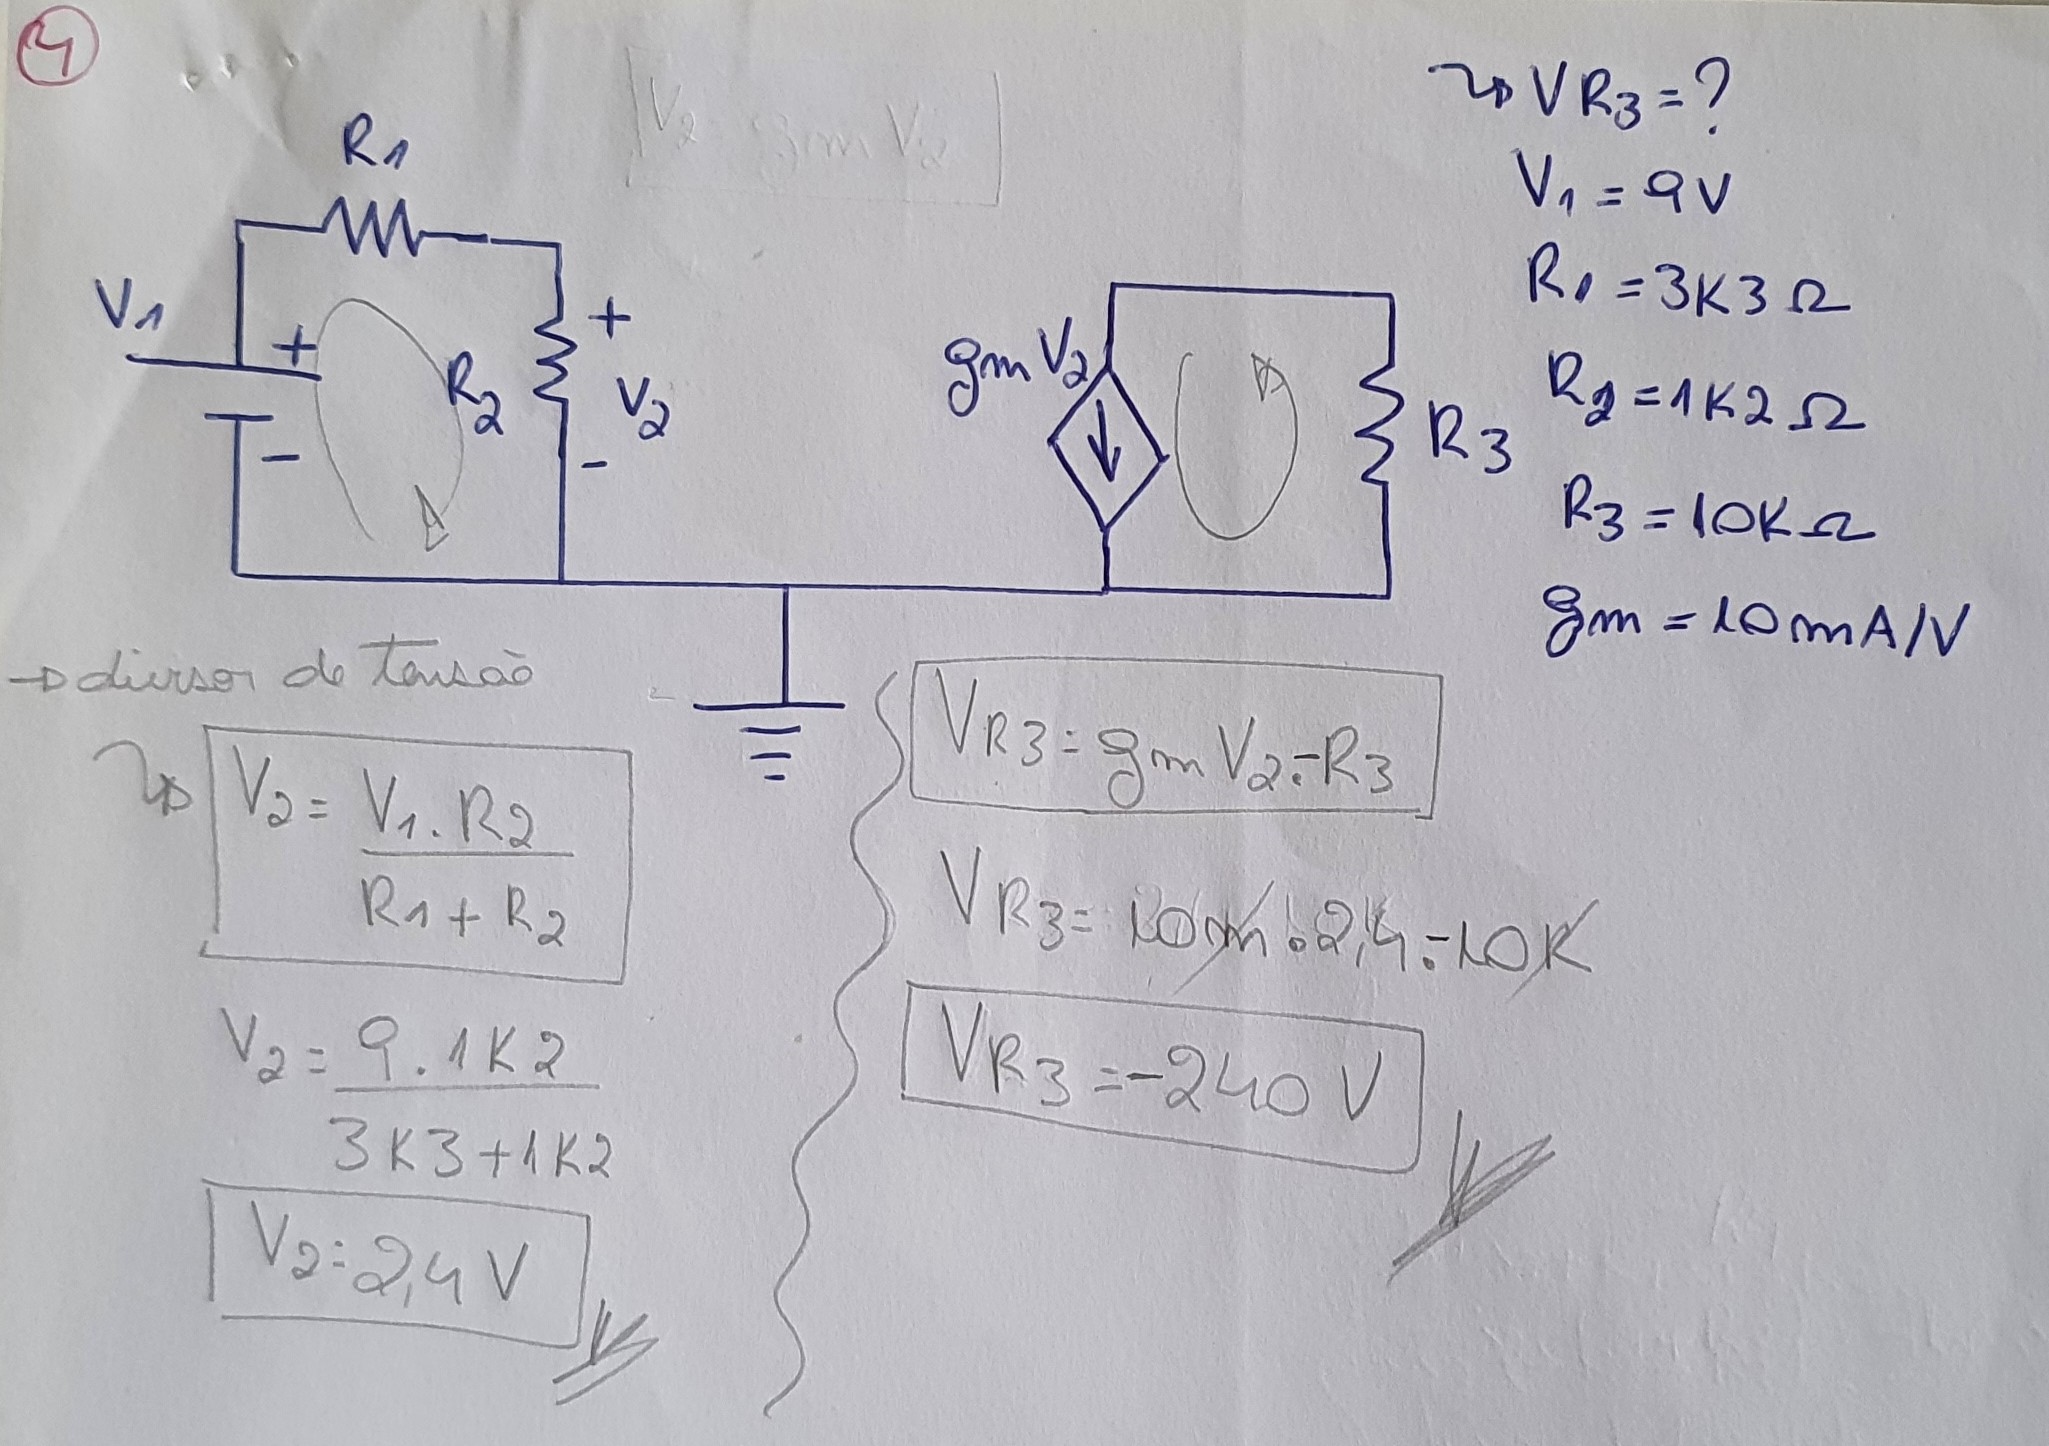 4
V2 gm V2
R1
V1
+
-
R2
+
V2
-
gm V2
R3
VR3 = ?
V1 = 9V
R1 = 3K3 Ω
R2 = 1K2 Ω
R3 = 10K Ω
gm = 10mA/V
→ divisor de tensão
V2 = V1 . R2
R1 + R2
V2 = 9 . 1K2
3K3 + 1K2
V2 = 2,4 V
VR3 = gm V2 . -R3
VR3 = 10m . 2,4 . -10K
VR3 = -240 V